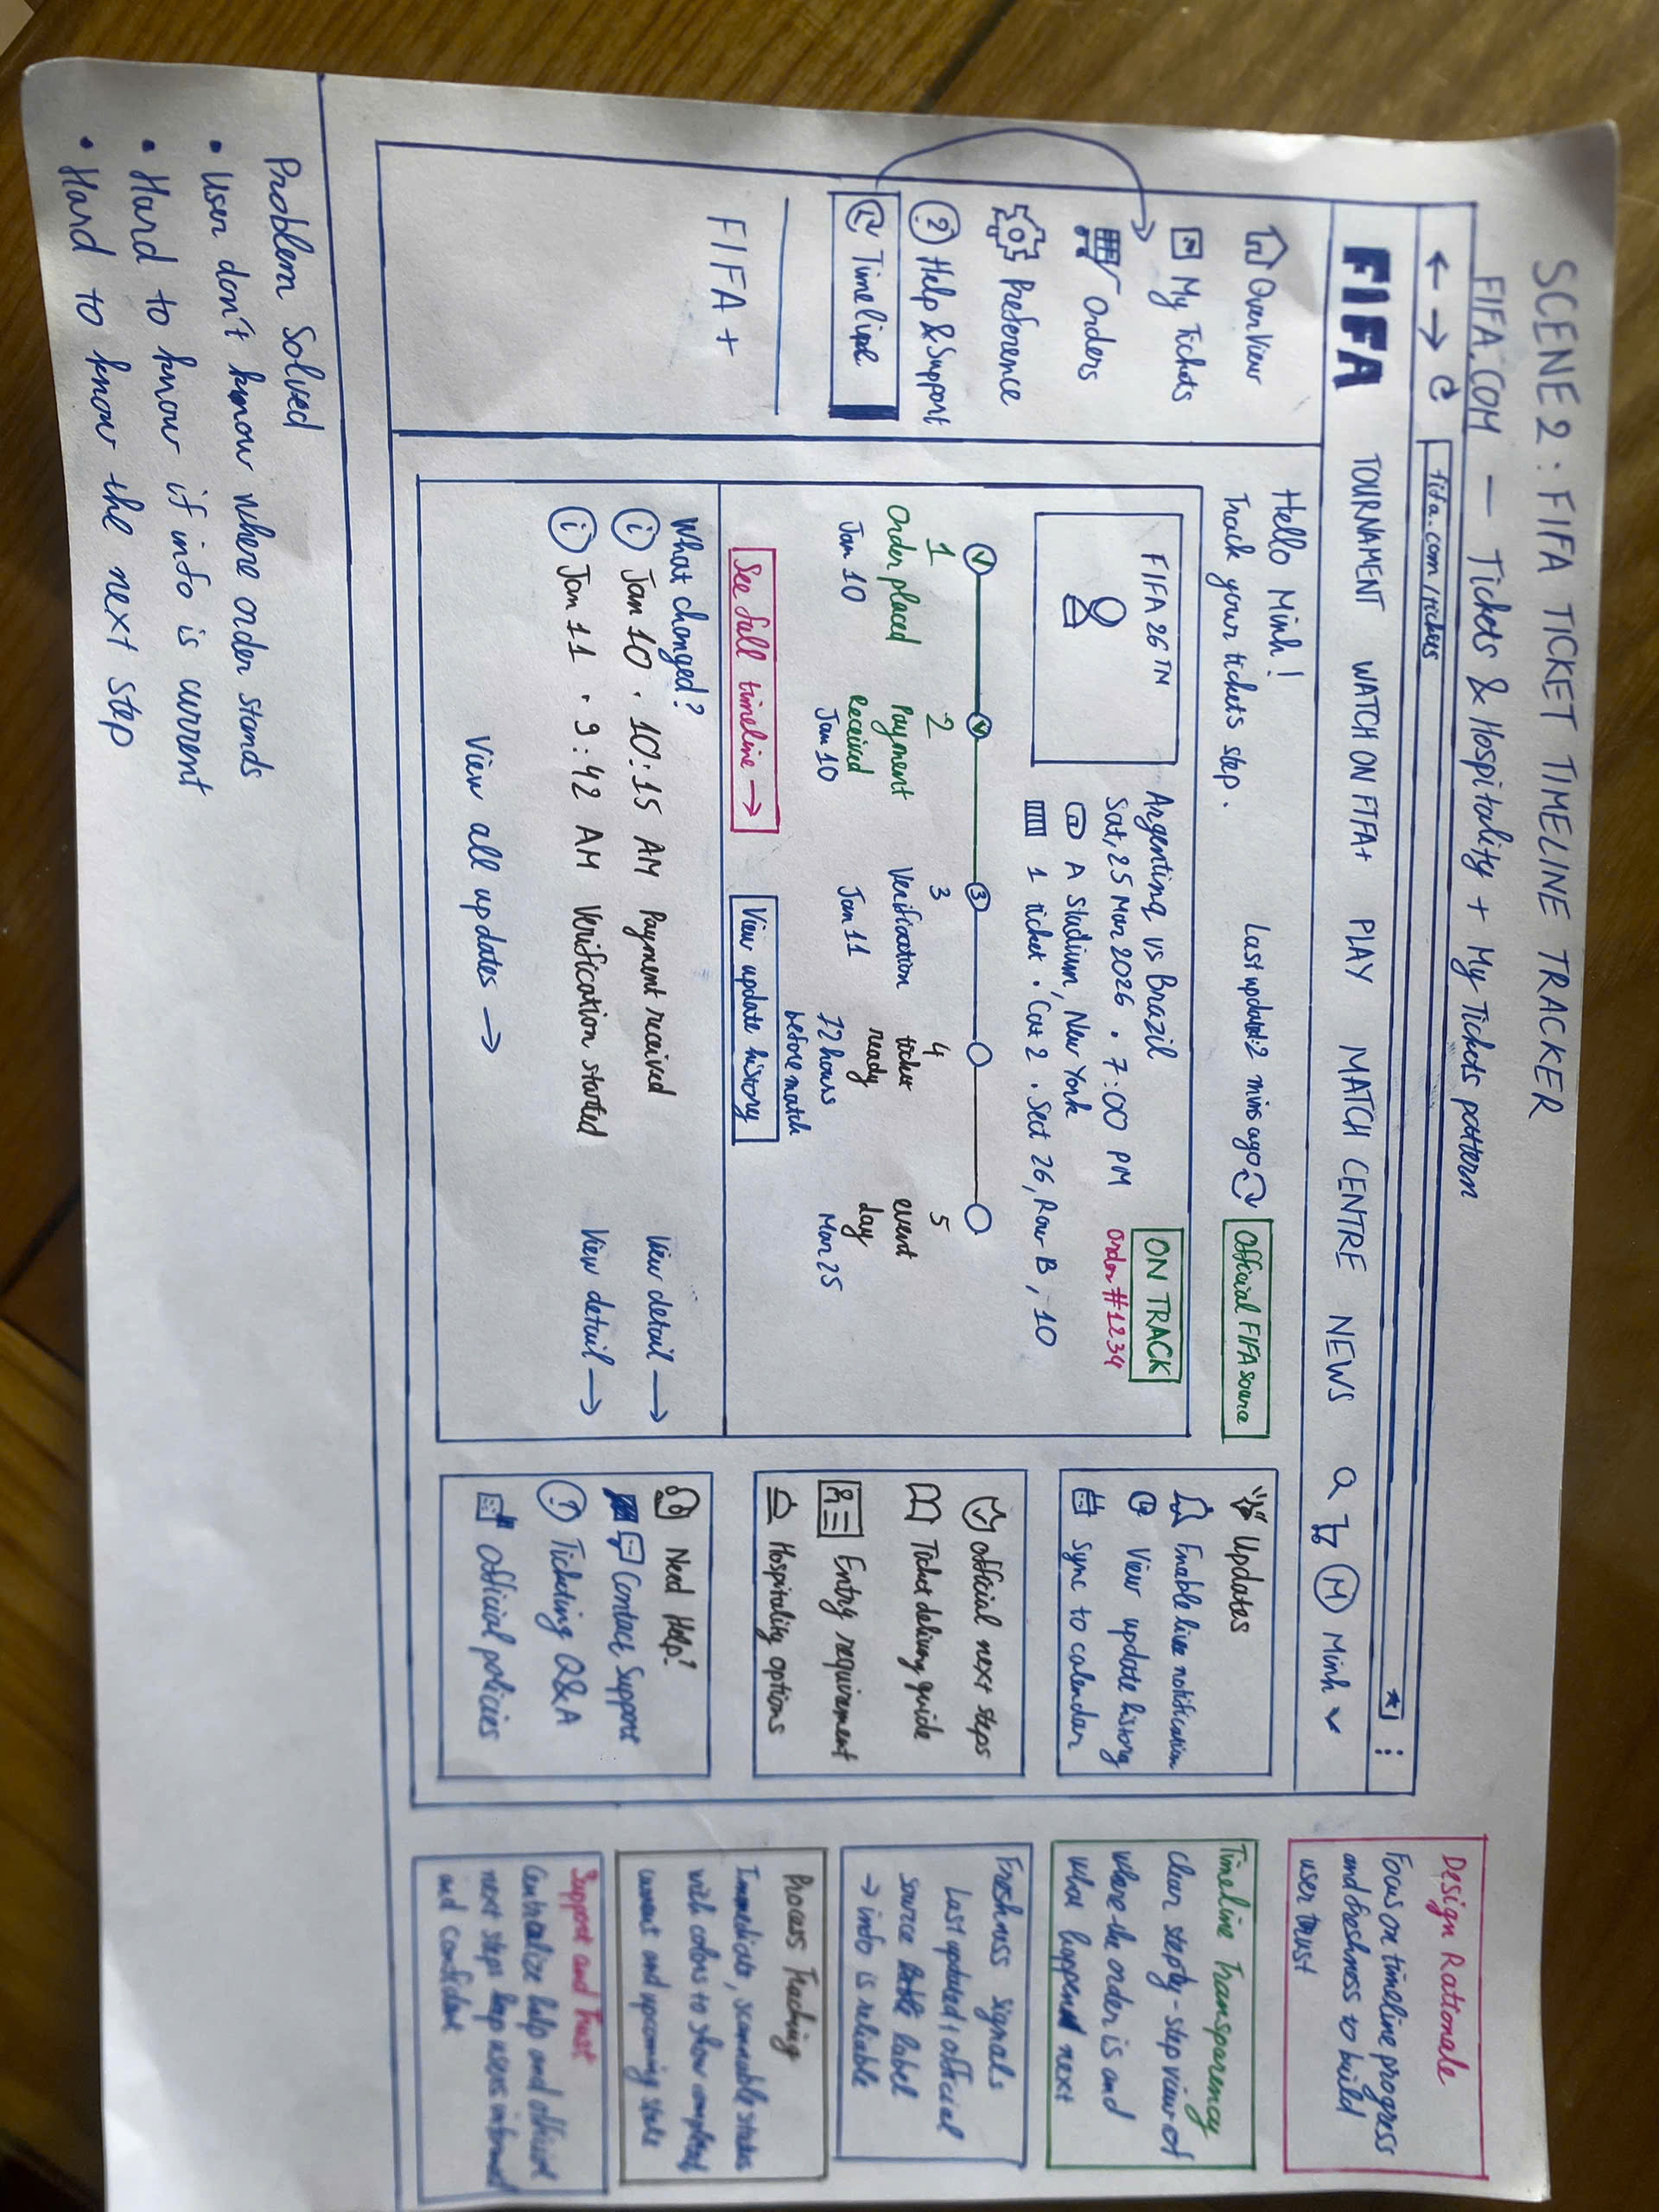 SCENE 2: FIFA TICKET TIMELINE TRACKER
FIFA.COM — Tickets & Hospitality + My Tickets pattern
fifa.com/tickets
FIFA TOURNAMENT WATCH ON FIFA+ PLAY MATCH CENTRE NEWS M Minh
OverView
My Tickets
Orders
Preference
Help & Support
Timeline
FIFA+
Hello Minh!
Track your tickets step.
Last updated: 2 mins ago
Official FIFA source
FIFA 26™
Argentina vs Brazil
Sat, 25 Mar 2026 · 7:00 PM
A Stadium, New York
1 ticket · Cat 2 · Sect 26, Row B, 10
ON TRACK
Order #1234
3
1
Order placed
Jan 10
2
Payment
received
Jan 10
3
Verification
Jan 11
4
ticket
ready
72 hours
before match
5
event
day
Mar 25
See full timeline →
View update history
What changed?
Jan 10 · 10:15 AM Payment received View detail →
Jan 11 · 9:42 AM Verification started View detail →
View all updates →
Updates
Enable live notification
View update history
Sync to calendar
official next steps
Ticket delivery guide
Entry requirement
Hospitality options
Need Help?
Contact Support
Ticketing Q&A
official policies
Design Rationale
Focus on timeline progress
and freshness to build
user trust
Timeline Transparency
clear step-by-step view of
where the order is and
what happens next
Freshness signals
Last updated + official
source label
→ info is reliable
Process Tracking
Immediate, scannable states
with colors to show completed
current and upcoming state
Support and Trust
Centralize help and official
next steps keep users informed
and confident
Problem Solved
• User don't know where order stands
• Hard to know if info is current
• Hard to know the next step